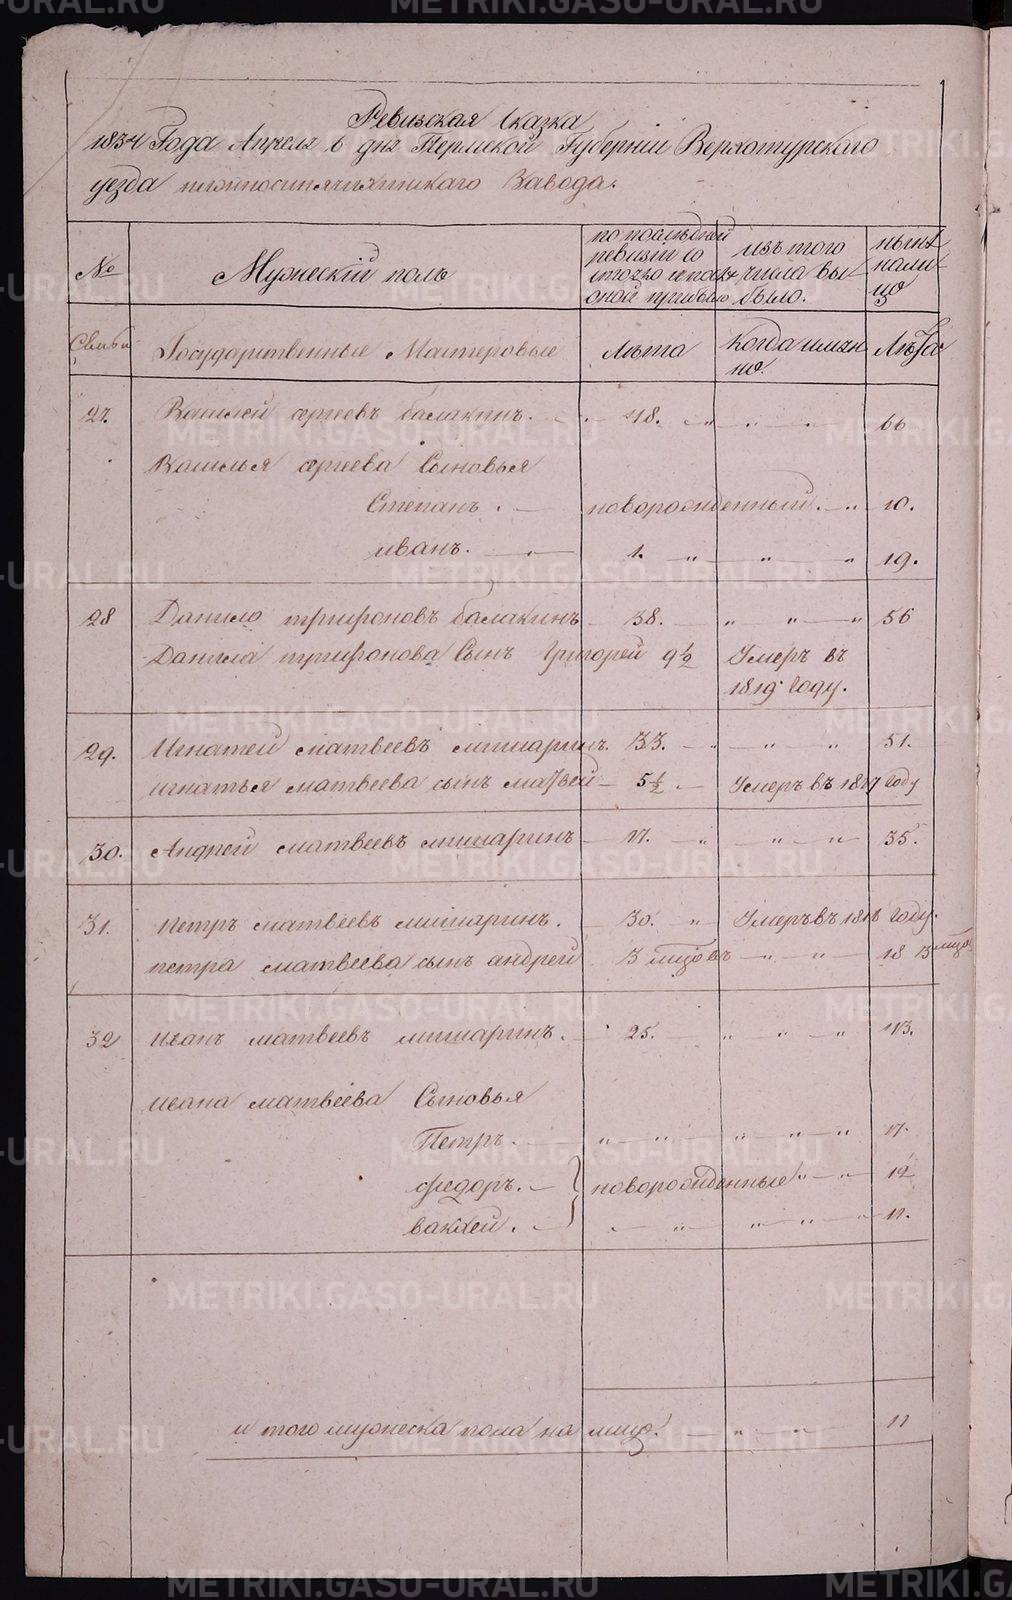 Ревизская Сказка
1834 Года Апреля 6 дня Пермской Губернии Верхотурского
уезда нижносинячихинскаго Завода.
№
Мужескій полъ
по последней ревизіи со стояло и после оной прибыло
изъ того числа вы было.
ныне нали цо
Семьи
Государственные Мастеровые
Лъта
Когда имянно.
Лъта
27. Василей сергеевъ балакинъ. 48. 66
Василья сергеева Сыновья
Степанъ. новорожденный. 10.
иванъ. 1. 19.
28 Данило трифоновъ балакинъ 38. 56
Данила трифонова Сынъ Григорей 9 1/2 Умеръ въ
1819 Году.
29. Игнатей матвеевъ мишаринъ. 33. 51.
игнатья матвеева сынъ матвей 5 1/2 Умеръ въ 1817 Году
30. Андрей матвеевъ мишаринъ 17. 35.
31. петръ матвеевъ мишаринъ. 30. Умеръ въ 1818 Году.
петра матвеева сынъ андрей 3 мцовъ 18
32 иванъ матвеевъ мишаринъ. 25. 43.
ивана матвеева Сыновья
Петръ. 17.
федоръ. новорожденные 12
вакхей. 11.
и того мужеска пола на лицо. 11
METRIKI.GASO-URAL.RU